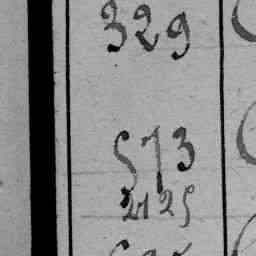 329
573
2125